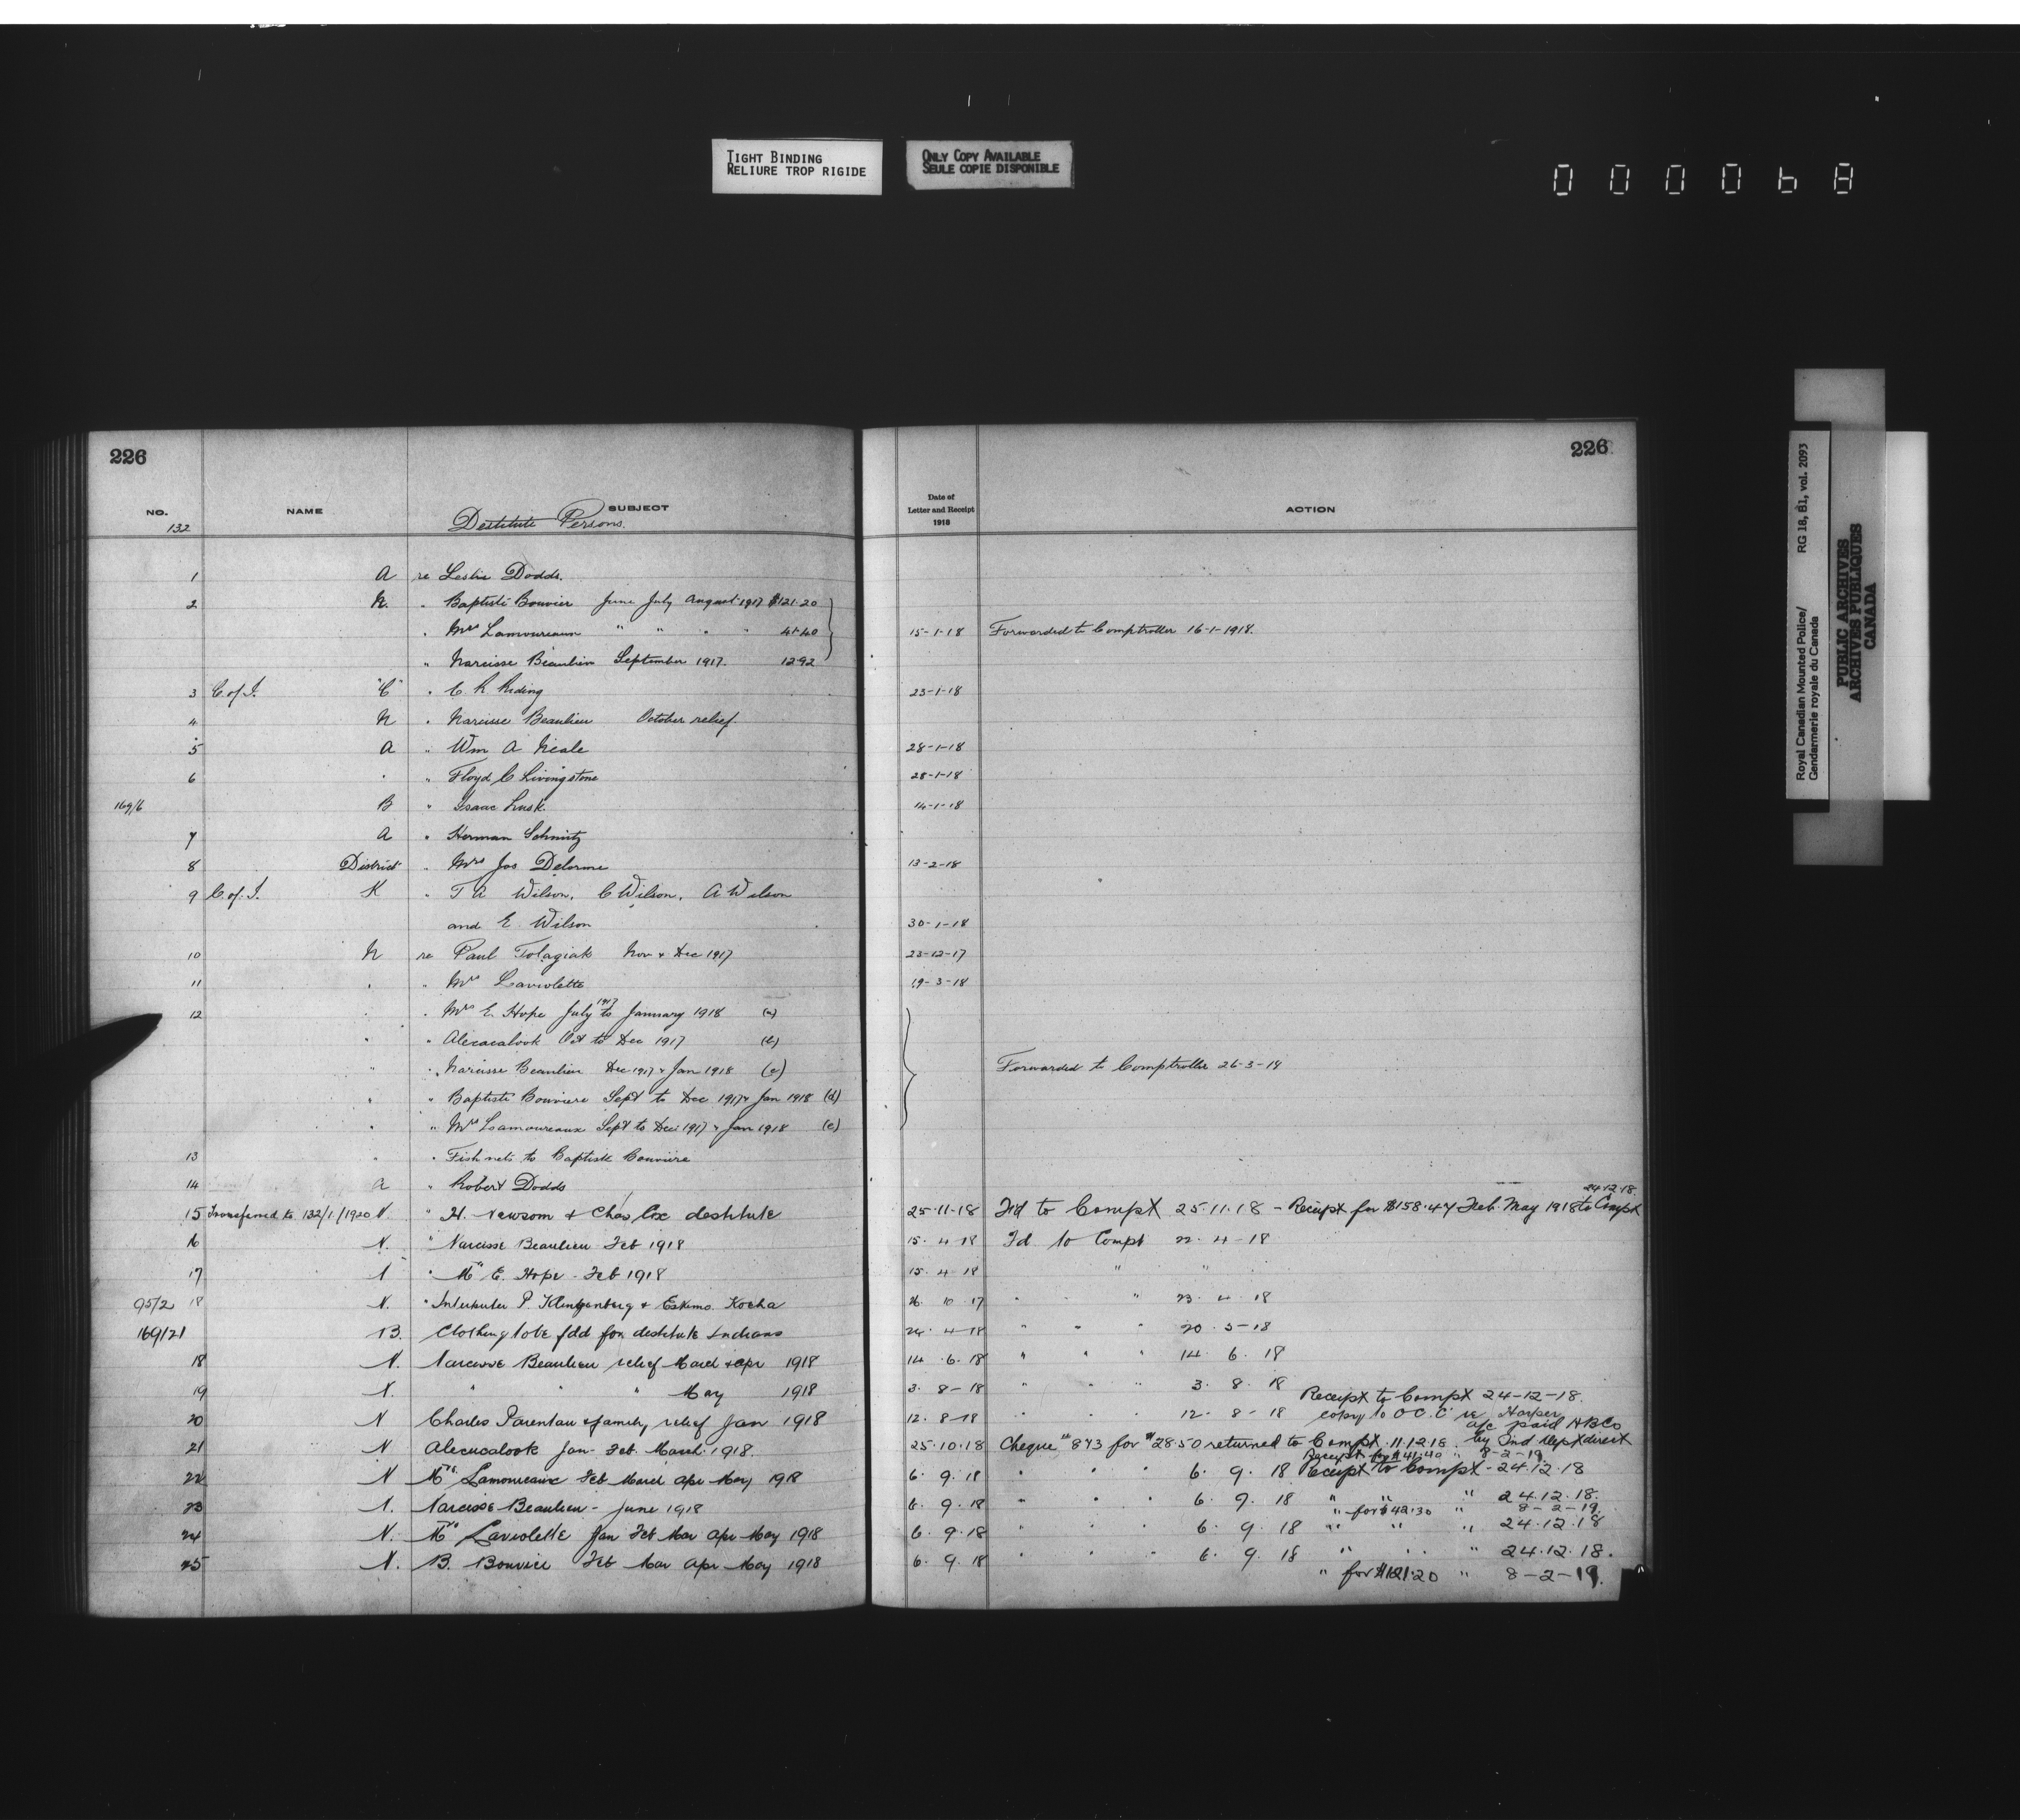 TIGHT BINDING
RELIURE TROP RIGIDE
ONLY COPY AVAILABLE
SEULE COPIE DISPONIBLE
226
226
NO. NAME SUBJECT
132 Destitute Persons.
Date of
Letter and Receipt
1918
ACTION
1 A re Leslie Dodds.
2 N. " Baptiste Bouvier June July August 1917 $121.20
" Mrs Lamoureaux " " " " 41.40 15-1-18 Forwarded to Comptroller 16-1-1918.
" Narcisse Beaulieu September 1917. 12.92
3 C. of I. "C" " C. R. Riding 23-1-18
4 N " Narcisse Beaulieu October relief
5 A " Wm A Neale 28-1-18
6 " " Floyd C Livingstone 28-1-18
169/6 B " Isaac Lusk. 14-1-18
7 A " Herman Schmitz
8 District " Mrs Jos Delorme 13-2-18
9 C. of. I. K " T A Wilson, C Wilson, A Wilson
and E. Wilson 30-1-18
10 N re Paul Tolagiak Nov & Dec 1917 23-12-17
11 " " Mrs Laviolette 19-3-18
12 " " Mrs E. Hope July 1917 to January 1918 (a)
" " Alecacalook Oct to Dec 1917 (b)
" " Narcisse Beaulieu Dec 1917 & Jan 1918 (c) Forwarded to Comptroller 26-3-18
" " Baptiste Bouviere Sept to Dec 1917 & Jan 1918 (d)
" " Mrs Lamoureaux Sept to Dec 1917 & Jan 1918 (e)
13 " " Fish nets to Baptiste Bouviere
14 A " Robert Dodds
24.12.18.
15 Transferred to 132/1/1920 N. " H. Newsom & Chas Cox destitute 25-11-18 Fd to Compt 25.11.18 - Receipt for $158.47 Feb. May 1918 to Compt
16 N. " Narcisse Beaulieu Feb 1918 15. 4-18 Fd to Compt 22. 4-18
17 N " Mrs E. Hope - Feb 1918 15. 4 18 " "
95/2 18 N. " Interpreter P. Klengenberg & Eskimo Kocha 26. 10 17 " " 23. 4. 18
169/21 B. Clothing to be fdd for destitute Indians 24. 4-18 " " " 20. 5-18
18 N. Narcisse Beaulieu relief March & Apr 1918 14. 6. 18 " " " 14. 6. 18
19 N. " " " May 1918 3. 8-18 " " " 3. 8. 18
Receipt to Compt 24-12-18
20 N Charles Parentau & family relief Jan 1918 12. 8-18 " " " 12. 8-18 copy to O.C. C re Harper
a/c paid HBCo
21 N Alecucalook Jan. Feb. March. 1918. 25.10.18 Cheque # 873 for $28.50 returned to Compt. 11.12.18. by Ind Dept direct
Receipt for $41.40 " 8-2-19
22 N Mrs Lamoureaux Feb March Apr May 1918 6. 9. 18 " " " 6. 9. 18 Receipt to Compt - 24.12.18
23 N. Narcisse Beaulieu - June 1918 6. 9. 18 " " " 6. 9. 18 " " " 24.12.18.
" for $42.30 " 8-2-19.
24 N. Mrs Laviolette Jan Feb Mar Apr May 1918 6. 9. 18 " " " 6. 9. 18 " " " 24.12.18
25 N. B. Bouvier Feb Mar Apr May 1918 6. 9. 18 " " " 6. 9. 18 " " " 24.12.18.
" for $121.20 " 8-2-19.
Royal Canadian Mounted Police/ RG 18, B1, vol. 2093
Gendarmerie royale du Canada
PUBLIC ARCHIVES
ARCHIVES PUBLIQUES
CANADA